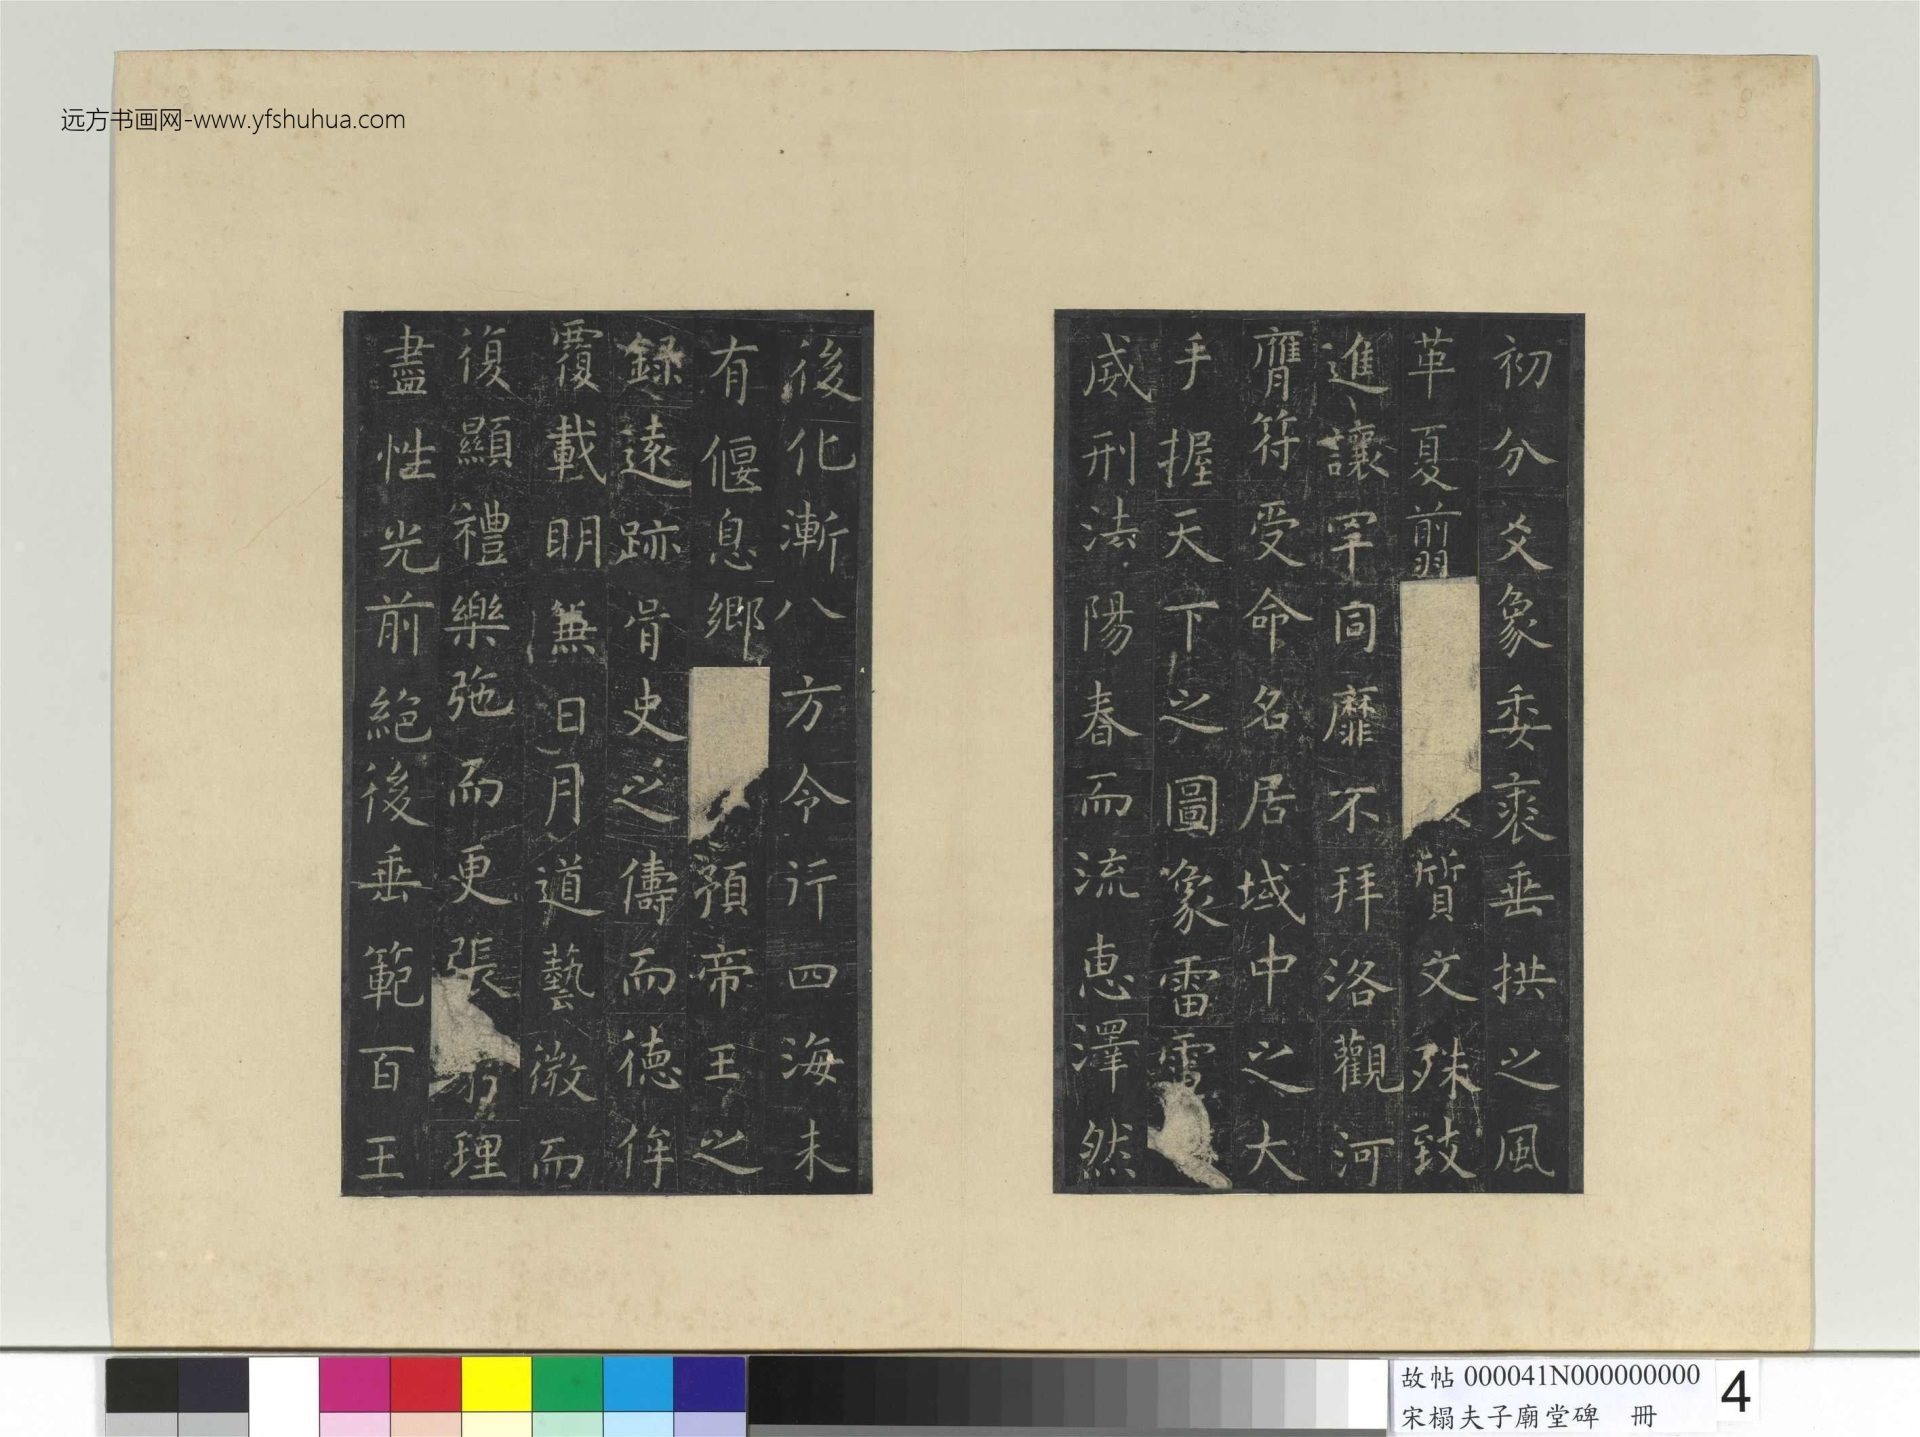 远方书画网-www.yfshuhua.com
初分爻象委裘垂拱之風
革夏翦質文殊致
進讓罕同靡不拜洛觀河
膺符受命名居域中之大
手握天下之圖象雷電
威刑法陽春而流惠澤然
後化漸八方令行四海未
有偃息鄉預帝王之
録遠跡胥史之儔而德侔
覆載明兼日月道藝微而
復顯禮樂弛而更張窮理
盡性光前絕後垂範百王
故帖 000041N000000000
宋榻夫子廟堂碑 冊
4